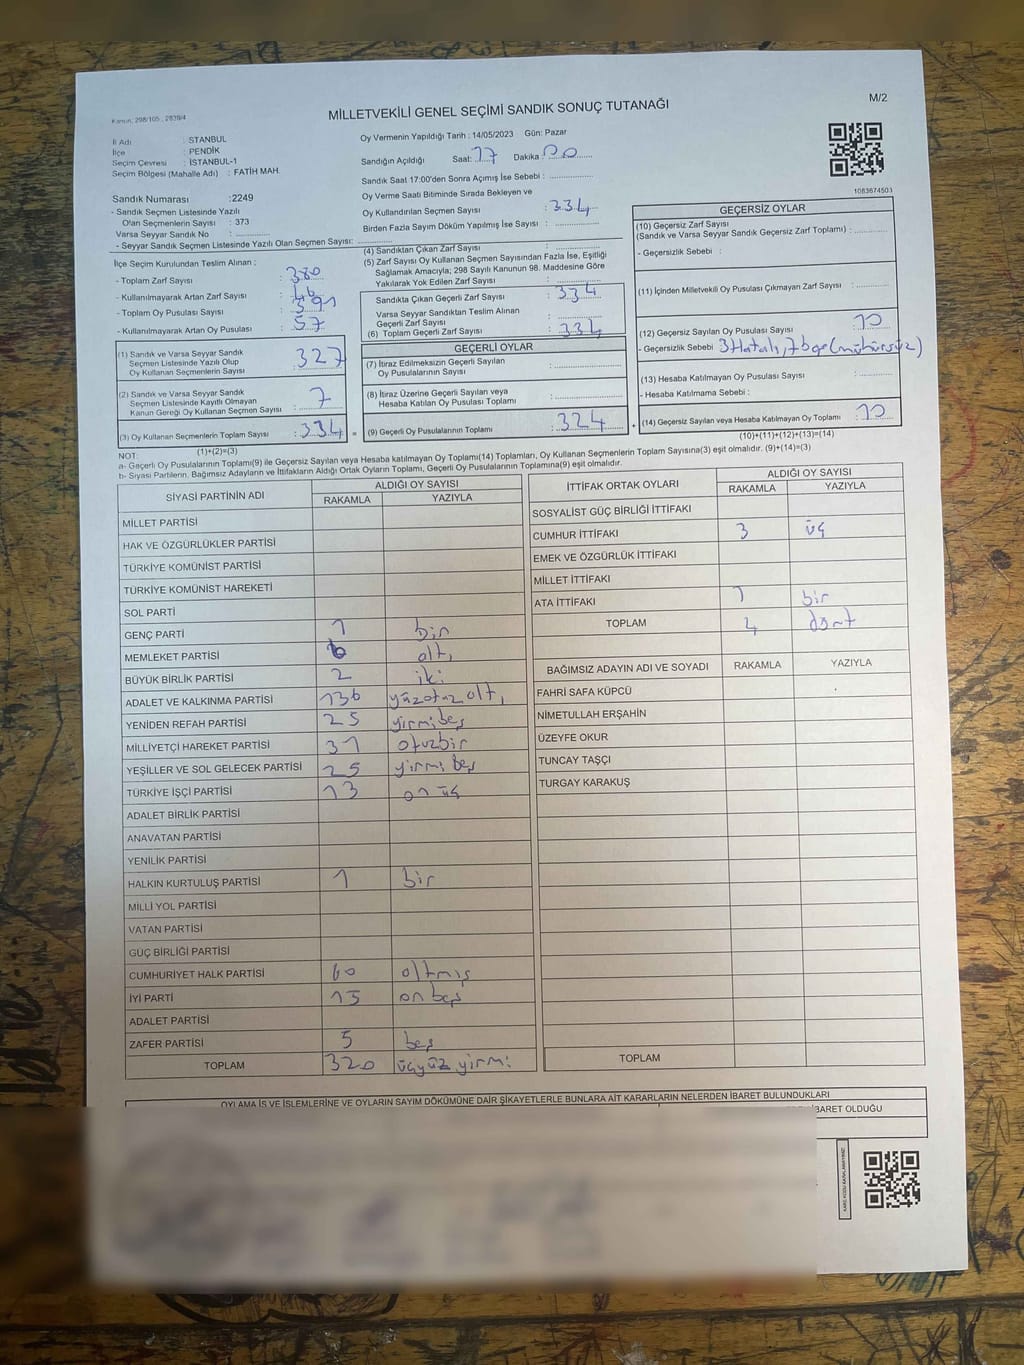 Kanun; 298/105 , 2839/4
MİLLETVEKİLİ GENEL SEÇİMİ SANDIK SONUÇ TUTANAĞI
M/2
İl Adı : STANBUL
İlçe : PENDİK
Seçim Çevresi : İSTANBUL-1
Seçim Bölgesi (Mahalle Adı) : FATİH MAH.
Oy Vermenin Yapıldığı Tarih : 14/05/2023 Gün: Pazar
Sandığın Açıldığı Saat: 17 Dakika 00
Sandık Saat 17:00'den Sonra Açımış İse Sebebi :
Oy Verme Saati Bitiminde Sırada Bekleyen ve
Oy Kullandırılan Seçmen Sayısı : 334
Birden Fazla Sayım Döküm Yapılmış İse Sayısı :
1083674503
Sandık Numarası :2249
- Sandık Seçmen Listesinde Yazılı
Olan Seçmenlerin Sayısı : 373
Varsa Seyyar Sandık No :
- Seyyar Sandık Seçmen Listesinde Yazılı Olan Seçmen Sayısı:
İlçe Seçim Kurulundan Teslim Alınan :
- Toplam Zarf Sayısı : 380
- Kullanılmayarak Artan Zarf Sayısı : 46
- Toplam Oy Pusulası Sayısı : 391
- Kullanılmayarak Artan Oy Pusulası : 57
(1) Sandık ve Varsa Seyyar Sandık
Seçmen Listesinde Yazılı Olup
Oy Kullanan Seçmenlerin Sayısı : 327
(2) Sandık ve Varsa Seyyar Sandık
Seçmen Listesinde Kayıtlı Olmayan
Kanun Gereği Oy Kullanan Seçmen Sayısı : 7
(3) Oy Kullanan Seçmenlerin Toplam Sayısı : 334 =
(1)+(2)=(3)
(4) Sandıktan Çıkan Zarf Sayısı :
(5) Zarf Sayısı Oy Kullanan Seçmen Sayısından Fazla İse, Eşitliği
Sağlamak Amacıyla; 298 Sayılı Kanunun 98. Maddesine Göre
Yakılarak Yok Edilen Zarf Sayısı :
Sandıkta Çıkan Geçerli Zarf Sayısı : 334
Varsa Seyyar Sandıktan Teslim Alınan
Geçerli Zarf Sayısı :
(6) Toplam Geçerli Zarf Sayısı : 334
GEÇERLİ OYLAR
(7) İtiraz Edilmeksizin Geçerli Sayılan
Oy Pusulalarının Sayısı :
(8) İtiraz Üzerine Geçerli Sayılan veya
Hesaba Katılan Oy Pusulası Toplamı :
(9) Geçerli Oy Pusulalarının Toplamı : 324 +
GEÇERSİZ OYLAR
(10) Geçersiz Zarf Sayısı
(Sandık ve Varsa Seyyar Sandık Geçersiz Zarf Toplamı) :
- Geçersizlik Sebebi :
(11) İçinden Milletvekili Oy Pusulası Çıkmayan Zarf Sayısı :
(12) Geçersiz Sayılan Oy Pusulası Sayısı : 10
- Geçersizlik Sebebi 3 Hatalı, 7 boş (mühürsüz)
(13) Hesaba Katılmayan Oy Pusulası Sayısı :
- Hesaba Katılmama Sebebi :
(14) Geçersiz Sayılan veya Hesaba Katılmayan Oy Toplamı : 10
(10)+(11)+(12)+(13)=(14)
NOT:
a- Geçerli Oy Pusulalarının Toplamı(9) ile Geçersiz Sayılan veya Hesaba katılmayan Oy Toplamı(14) Toplamları, Oy Kullanan Seçmenlerin Toplam Sayısına(3) eşit olmalıdır. (9)+(14)=(3)
b- Siyasi Partilerin, Bağımsız Adayların ve İttifakların Aldığı Ortak Oyların Toplamı, Geçerli Oy Pusulalarının Toplamına(9) eşit olmalıdır.
SİYASİ PARTİNİN ADI
ALDIĞI OY SAYISI
RAKAMLA YAZIYLA
MİLLET PARTİSİ
HAK VE ÖZGÜRLÜKLER PARTİSİ
TÜRKİYE KOMÜNİST PARTİSİ
TÜRKİYE KOMÜNİST HAREKETİ
SOL PARTİ
GENÇ PARTİ 1 bir
MEMLEKET PARTİSİ 6 altı
BÜYÜK BİRLİK PARTİSİ 2 iki
ADALET VE KALKINMA PARTİSİ 136 yüzotuz altı
YENİDEN REFAH PARTİSİ 25 yirmibeş
MİLLİYETÇİ HAREKET PARTİSİ 31 otuzbir
YEŞİLLER VE SOL GELECEK PARTİSİ 25 yirmi beş
TÜRKİYE İŞÇİ PARTİSİ 13 on üç
ADALET BİRLİK PARTİSİ
ANAVATAN PARTİSİ
YENİLİK PARTİSİ
HALKIN KURTULUŞ PARTİSİ 1 bir
MİLLİ YOL PARTİSİ
VATAN PARTİSİ
GÜÇ BİRLİĞİ PARTİSİ
CUMHURİYET HALK PARTİSİ 60 altmış
İYİ PARTİ 15 on beş
ADALET PARTİSİ
ZAFER PARTİSİ 5 beş
TOPLAM 320 üçyüz yirmi
İTTİFAK ORTAK OYLARI
ALDIĞI OY SAYISI
RAKAMLA YAZIYLA
SOSYALİST GÜÇ BİRLİĞİ İTTİFAKI
CUMHUR İTTİFAKI 3 üç
EMEK VE ÖZGÜRLÜK İTTİFAKI
MİLLET İTTİFAKI
ATA İTTİFAKI 1 bir
TOPLAM 4 dört
BAĞIMSIZ ADAYIN ADI VE SOYADI RAKAMLA YAZIYLA
FAHRİ SAFA KÜPCÜ
NİMETULLAH ERŞAHİN
ÜZEYFE OKUR
TUNCAY TAŞÇI
TURGAY KARAKUŞ
TOPLAM
OYLAMA İŞ VE İŞLEMLERİNE VE OYLARIN SAYIM DÖKÜMÜNE DAİR ŞİKAYETLERLE BUNLARA AİT KARARLARIN NELERDEN İBARET BULUNDUKLARI
İBARET OLDUĞU